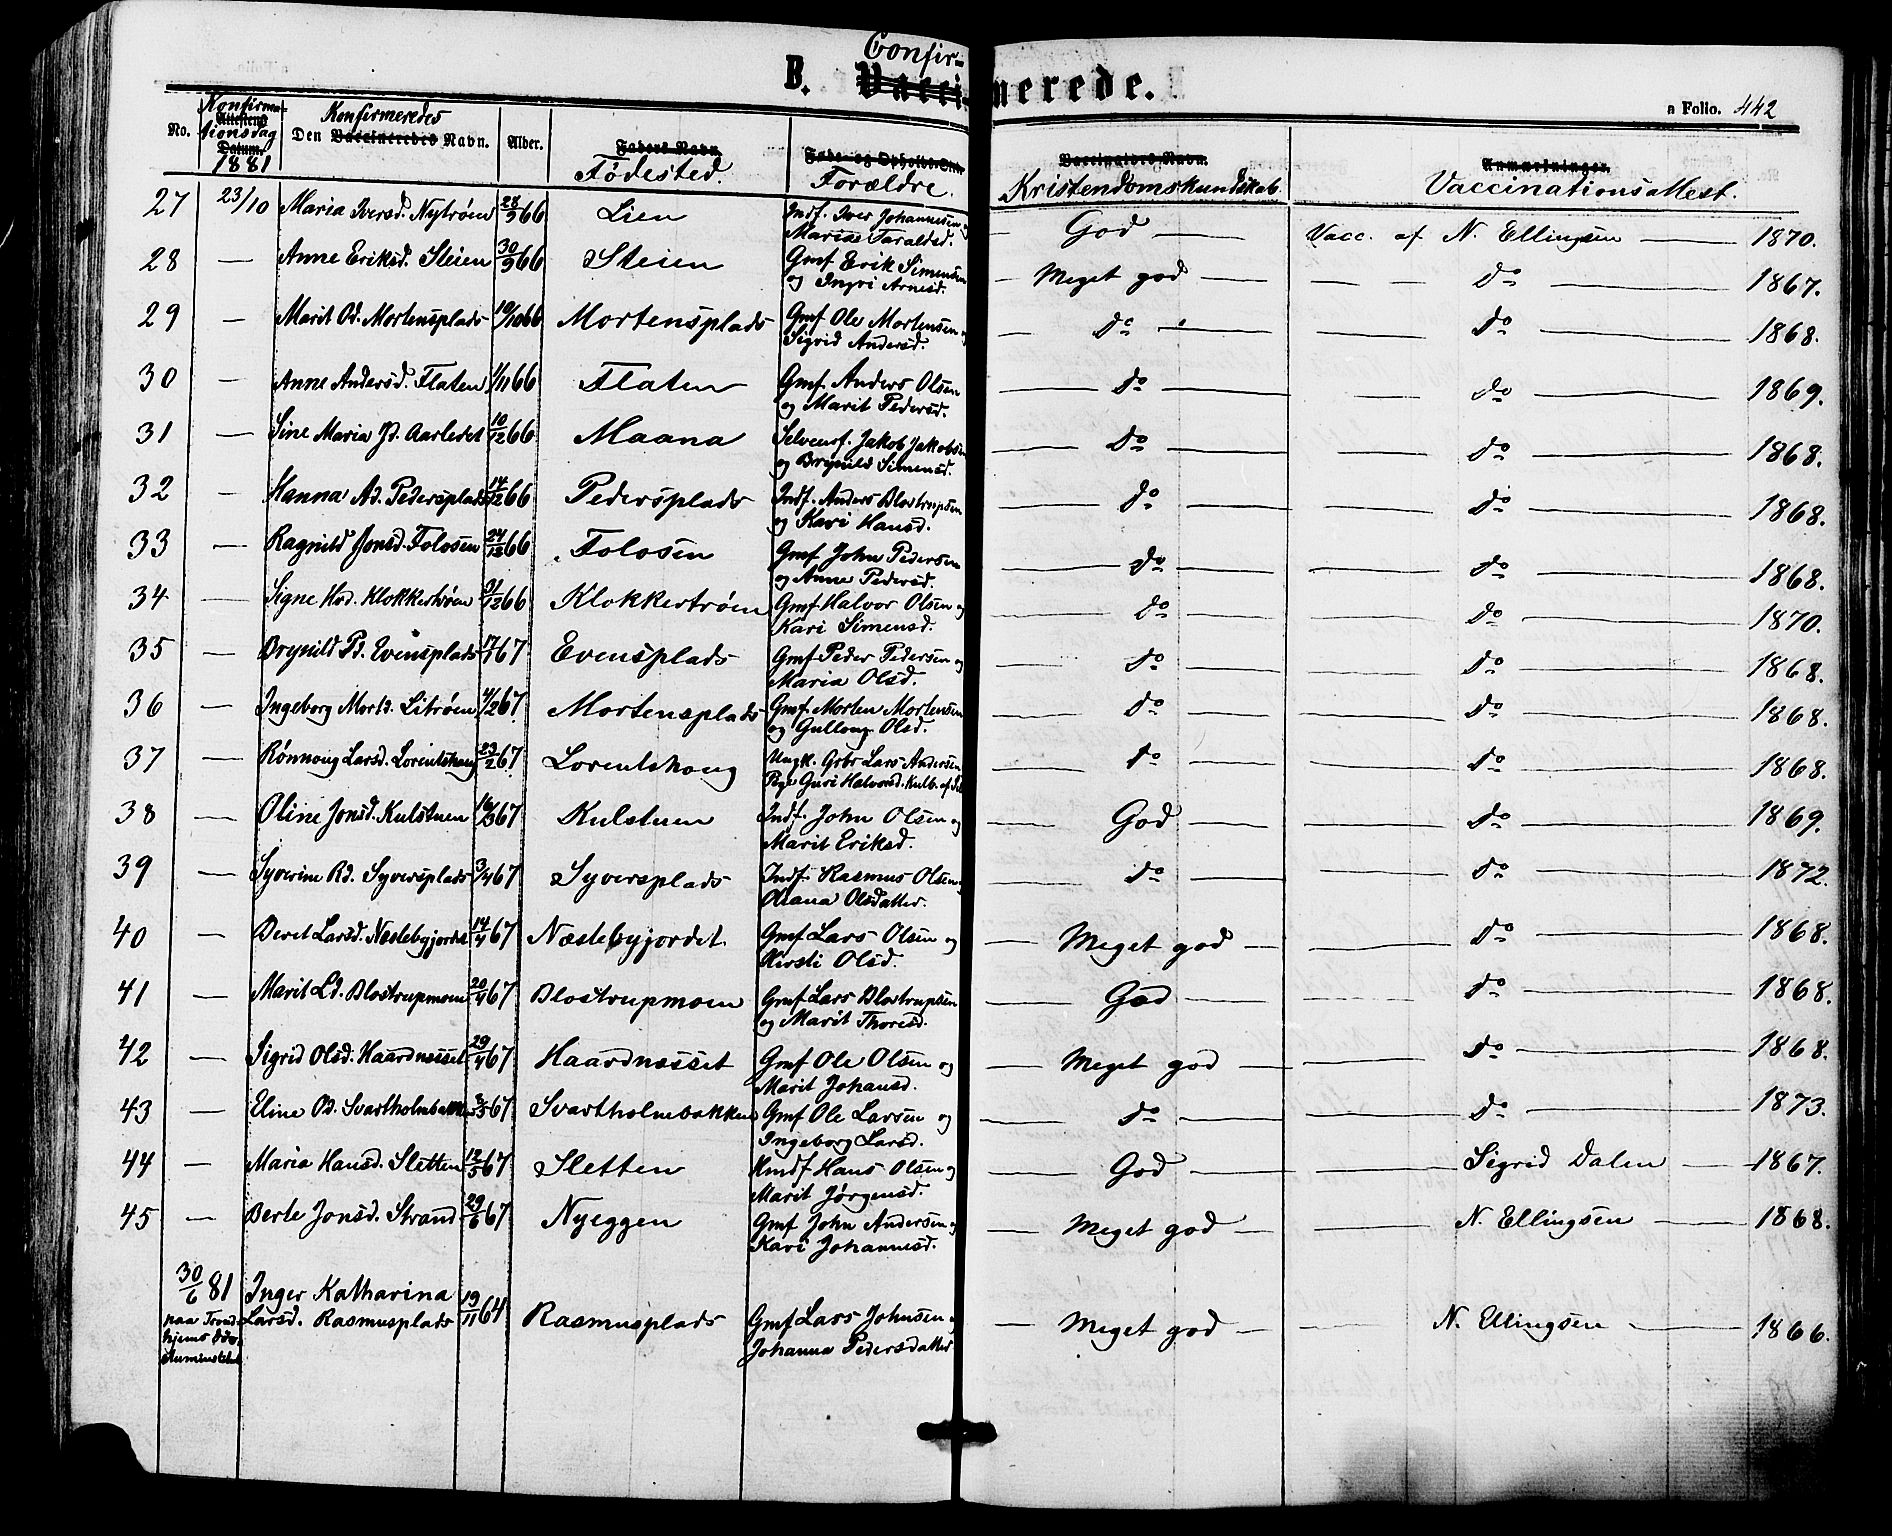 B. Confir- ~~Vacci~~nerede.
a Folio. 442
No. Konfirmationsdag ~~Attestens Datum.~~ 1881 Den Konfirmeredes ~~Vaccineredes~~ Navn. Alder. ~~Faders Navn.~~ Födested. ~~Føde- og Opholds-Sted~~ Forældre. ~~Vaccinators Navn.~~ Kristendomskundskab. ~~Anmærkninger.~~ Vaccinationsattest.
27 23/10 Maria Iversd. Nytrøen 28/9 66 Lien Indf. Iver Johannesen og — God — Vacc. af N. Ellingsen — 1870.
Marias Taraldsd.
28 — Anne Eriksd. Steien 30/9 66 Steien Gmf Erik Simensen — Meget god — — — Do — 1867.
og Ingri Arnesd.
29 — Marit Od. Mortensplads 10/10 66 Mortensplads Gmf Ole Mortensen og — Do — — Do — 1868.
Sigrid Andersd.
30 — Anne Andersd. Flaten 1/11 66 Flaten Gmf. Anders Olsen — Do — — Do — 1869.
og Marit Pedersd.
31 — Sine Maria Jd. Aarledet 10/12 66 Maana Selveierf. Jakob Jakobsen — Do — — Do — 1868.
og Brynild Simensd.
32 — Hanna Ad. Pedersplads 14/12 66 Pedersplads Indf. Anders Blostrupsen — Do — — Do — 1868.
og Kari Hansd.
33 — Ragnild Jonsd. Folosen 24/12 66 Folosen Gmf John Pedersen — Do — — Do — 1868.
og Anne Pedersd.
34 — Signe Hd. Klokkertrøen 31/12 66 Klokkertrøen Gmf Halvor Olsen og — Do — — Do — 1870.
Kari Simensd.
35 — Brynild Pd. Evensplads 17/1 67 Evensplads Gmf Peder Pedersen og — Do — — Do — 1868.
Maria Olsd.
36 — Ingeborg Mortd. Litrøen 4/2 67. Mortensplads Gmf. Morten Mortensen — Do — — Do — 1868.
og Gulloug Olsd.
37 — Rønnoug Larsd. Lorentshoug 23/2 67. Lorentshoug Ungk. Grbr Lars Andersen — Do — — Do — 1868.
Pige Guri Halvorsd. Kulb. af
38 — Oline Jonsd. Kulstuen 16/3 67 Kulstuen Indf. John Olsen og — God — — Do — 1869.
Marit Eriksd.
39 — Syverine Rd. Syversplads 3/4 67 Syversplads Indf. Rasmus Olsen — Do — — Do — 1872.
Oliana Olsdatter.
40 — Beret Larsd. Næstebyjordet 14/4 67 Næstebyjordet Gmf Lars Olsen og — Meget god — — Do — 1868.
Kirsti Olsd.
41 — Marit Ld. Blostrupmoen 20/4 67 Blostrupmoen Gmf Lars Blostrupsen — God — — Do — 1868.
og Marit Thoresd.
42 — Sigrid Olsd. Haardnæsset 29/4 67 Haardnæsset Gmf Ole Olsen og — Meget god — — Do — 1868.
Marit Johansd.
43 — Eline Od. Svartholmbakken 3/5 67 Svartholmbakken Gmf Ole Larsen og — Do — — Do — 1873.
Ingeborg Larsd.
44 — Maria Hansd. Sletten 12/5 67 Sletten Hmdf Hans Olsen og — God — — Sigrid Dalen — 1867.
Marit Jørgensd.
45 — Berte Jonsd. Strand 29/6 67 Nyeggen Gmf John Andersen og — Meget god — — N. Ellingsen — 1868.
Kari Johannesd.
30/6 81 Inger Katharina
paa Trond- Larsd. Rasmusplads 19/11 64 Rasmusplads Gmf Lars Johnsen og — Meget god — — N. Ellingsen — 1866.
hjems Johanna Pedersdatter